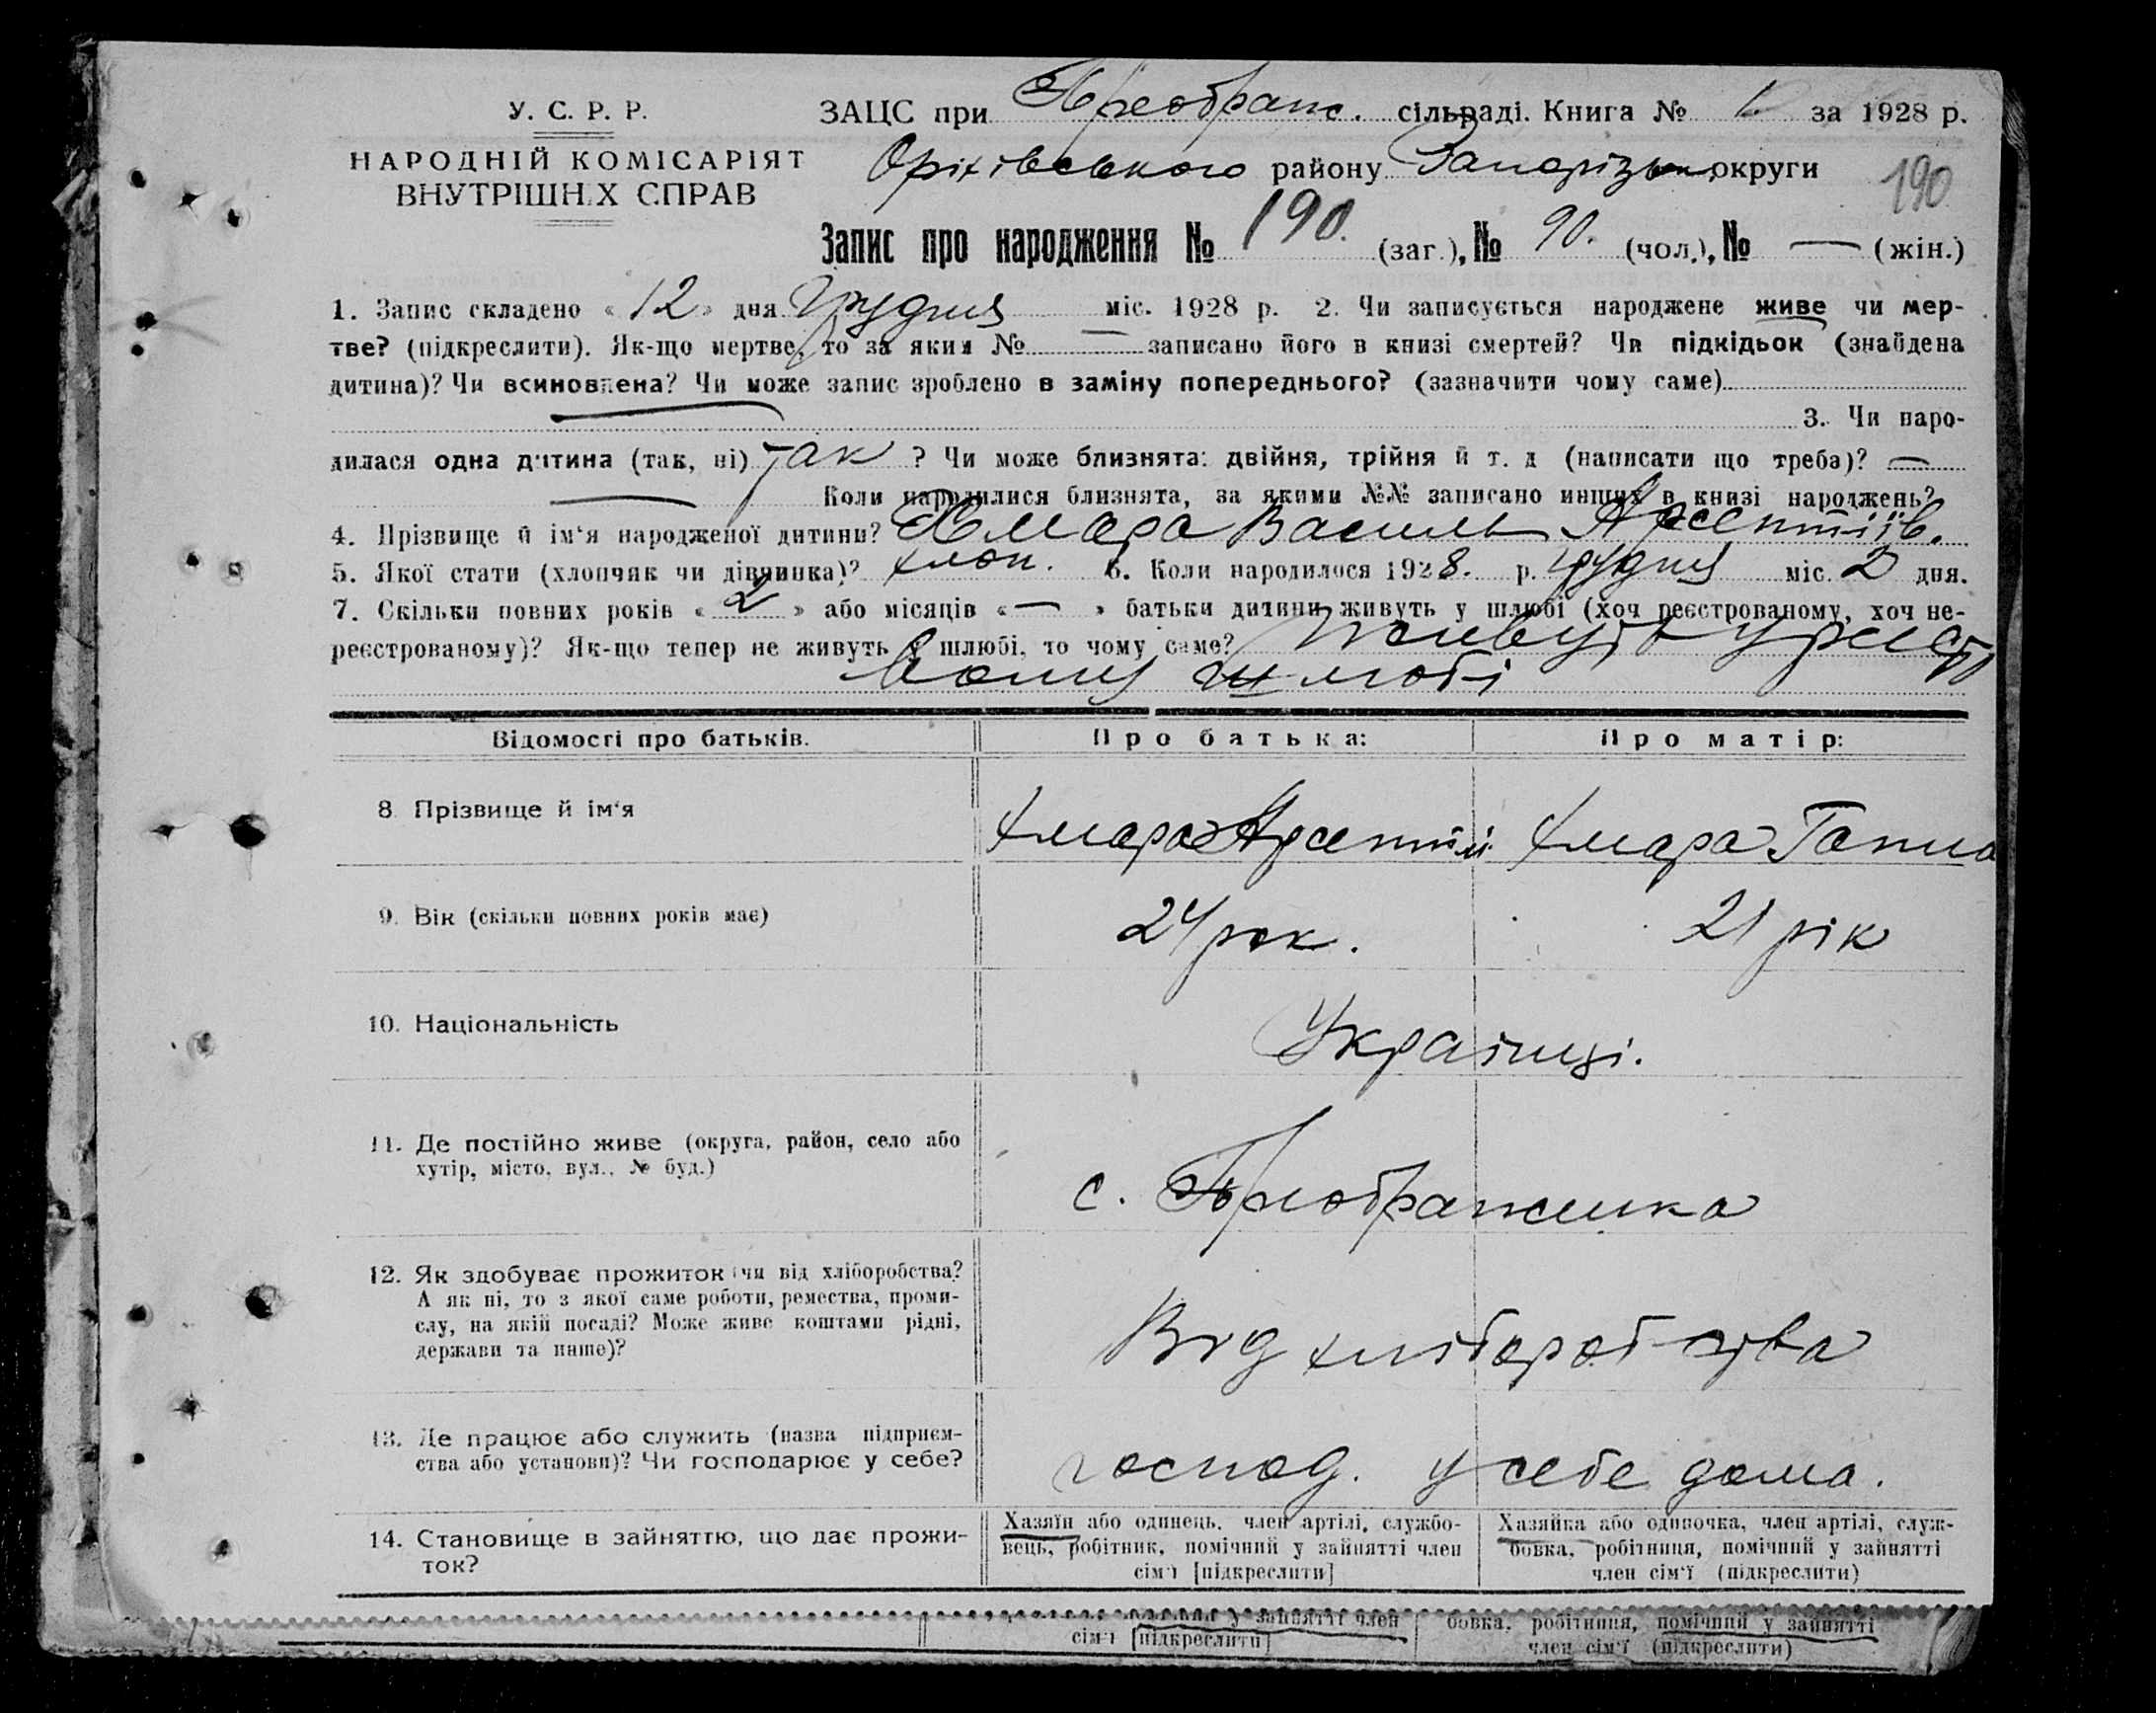 У. С. Р. Р.
НАРОДНІЙ КОМІСАРІЯТ
ВНУТРІШНІХ СПРАВ
ЗАЦС при Преображ. сільраді. Книга № 1. за 1928 р.
Оріхівського району Запорізьк. округи
190
Запис про народження № 190. (заг.), № 90. (чол.), № — (жін.)
1. Запис складено «12» дня Грудня міс. 1928 р. 2. Чи записується народжене живе чи мер-
тве? (підкреслити). Як-що мертве, то за яким № — записано його в книзі смертей? Чи підкідьок (знайдена
дитина)? Чи всиновлена? Чи може запис зроблено в заміну попереднього? (зазначити чому саме)
— 3. Чи наро-
дилася одна дитина (так, ні) так ? Чи може близнята: двійня, трійня й т. д (написати що треба)? —
— Коли народилися близнята, за якими №№ записано инших в книзі народжень?
4. Прізвище й ім'я народженої дитини? Хмара Василь Арсентіїв.
5. Якої стати (хлопчик чи дівчинка)? хлоп. 6. Коли народилося 1928. р. грудня міс. 2 дня.
7. Скільки повних років «2» або місяців «—» батьки дитини живуть у шлюбі (хоч реєстрованому, хоч не-
реєстрованому)? Як-що тепер не живуть у шлюбі, то чому саме? Живуть у реєстро
вому шлюбі
Відомості про батьків. Про батька: Про матір:
8. Прізвище й ім'я Хмара Арсентій Хмара Ганна
9. Вік (скільки повних років має) 24 рок. 21 рік
10. Національність Українці.
11. Де постійно живе (округа, район, село або
хутір, місто, вул., № буд.)
с. Преображенка
12. Як здобуває прожиток (чи від хліборобства?
А як ні, то з якої саме роботи, ремества, проми-
слу, на якій посаді? Може живе коштами рідні,
держави та инше)?
Від хліборобства
13. Де працює або служить (назва підприєм-
ства або установи)? Чи господарює у себе?
господ. у себе дома.
14. Становище в зайняттю, що дає прожи-
ток?
Хазяїн або одинець, член артілі, службо-
вець, робітник, помічний у зайнятті член
сім'ї [підкреслити]
Хазяйка або одиночка, член артілі, служ-
бовка, робітниця, помічний у зайнятті
член сім'ї (підкреслити)
у зайнятті член
сім'ї [підкреслити]
бовка, робітниця, помічний у зайнятті
член сім'ї (підкреслити)